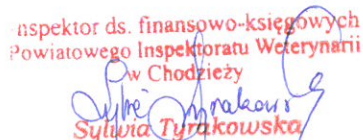 Inspektor ds. finansowo-księgowych
Powiatowego Inspektoratu Weterynarii
w Chodzieży
Sylwia Tyrakowska